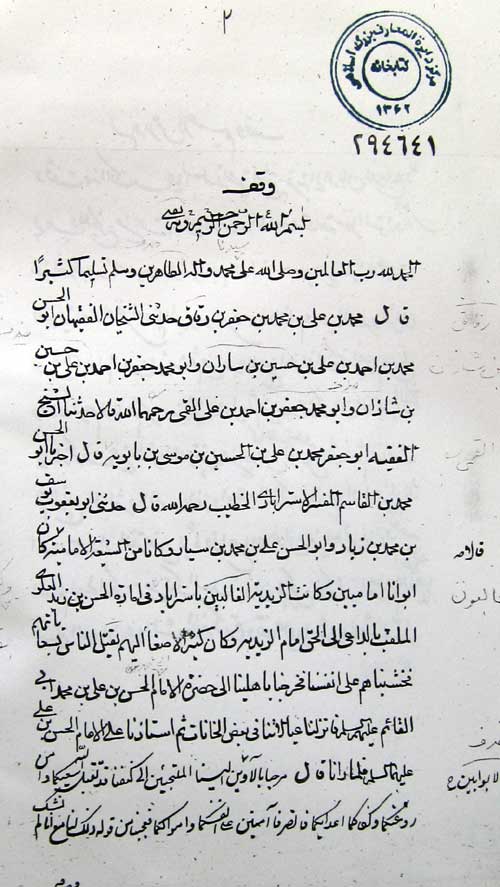 ٢
مرکز دایرة المعارف بزرگ اسلامی
کتابخانه
١٣٦٢
٢٩٤٦٤١
وقف
بسم الله الرحمن الرحیم وبه
الحمد لله رب العالمین وصلی الله علی محمد واله الطاهرین وسلم تسلیما کثیرا
قال محمد بن علی بن محمد بن جعفر بن دقاق حدثنی الشیخان الفقیهان ابو الحسن
محمد بن احمد بن علی بن حسین بن شاذان وابو محمد جعفر بن احمد بن علی بن حسین
بن شاذان وابو محمد جعفر بن احمد بن علی القمی رحمهما الله قالا حدثنا الشیخ
الفقیه ابو جعفر محمد بن علی بن الحسین بن موسی بن بابویه قال اخبرنا ابو الحسن
محمد بن القاسم المفسر الاسترابادی الخطیب رحمه الله قال حدثنی ابو یعقوب یوسف
بن محمد بن زیاد وابو الحسن علی بن محمد بن سیار وکانا من الشیعة الامامیة کان
ابوانا امامیین وکانت الزیدیة الغالبین باستراباد فی امارة الحسن بن زید العلوی
الملقب بالداعی الی الحق امام الزیدیة وکان کثیر الاصغاء الیهم یقتل الناس بسعایاتهم
فخشیناهم علی انفسنا فخرجنا باهلینا الی حضرة الامام الحسن بن علی بن محمد ابی
القائم علیهم السلام فانزلنا عیالاتنا فی بعض الخانات ثم استاذنا علی الامام الحسن بن علی
علیهما السلام فلما رانا قال مرحبا بالاوین الینا الملتجئین الی کنفنا قد تقبل الله سعیکما وامن
روعتکما وکفاکما اعدائکما فانصرفا آمنین علی انفسکما واموالکما فعجبنا من قوله ذلک لنا مع انا لم نشک
قلامه
الابوابین